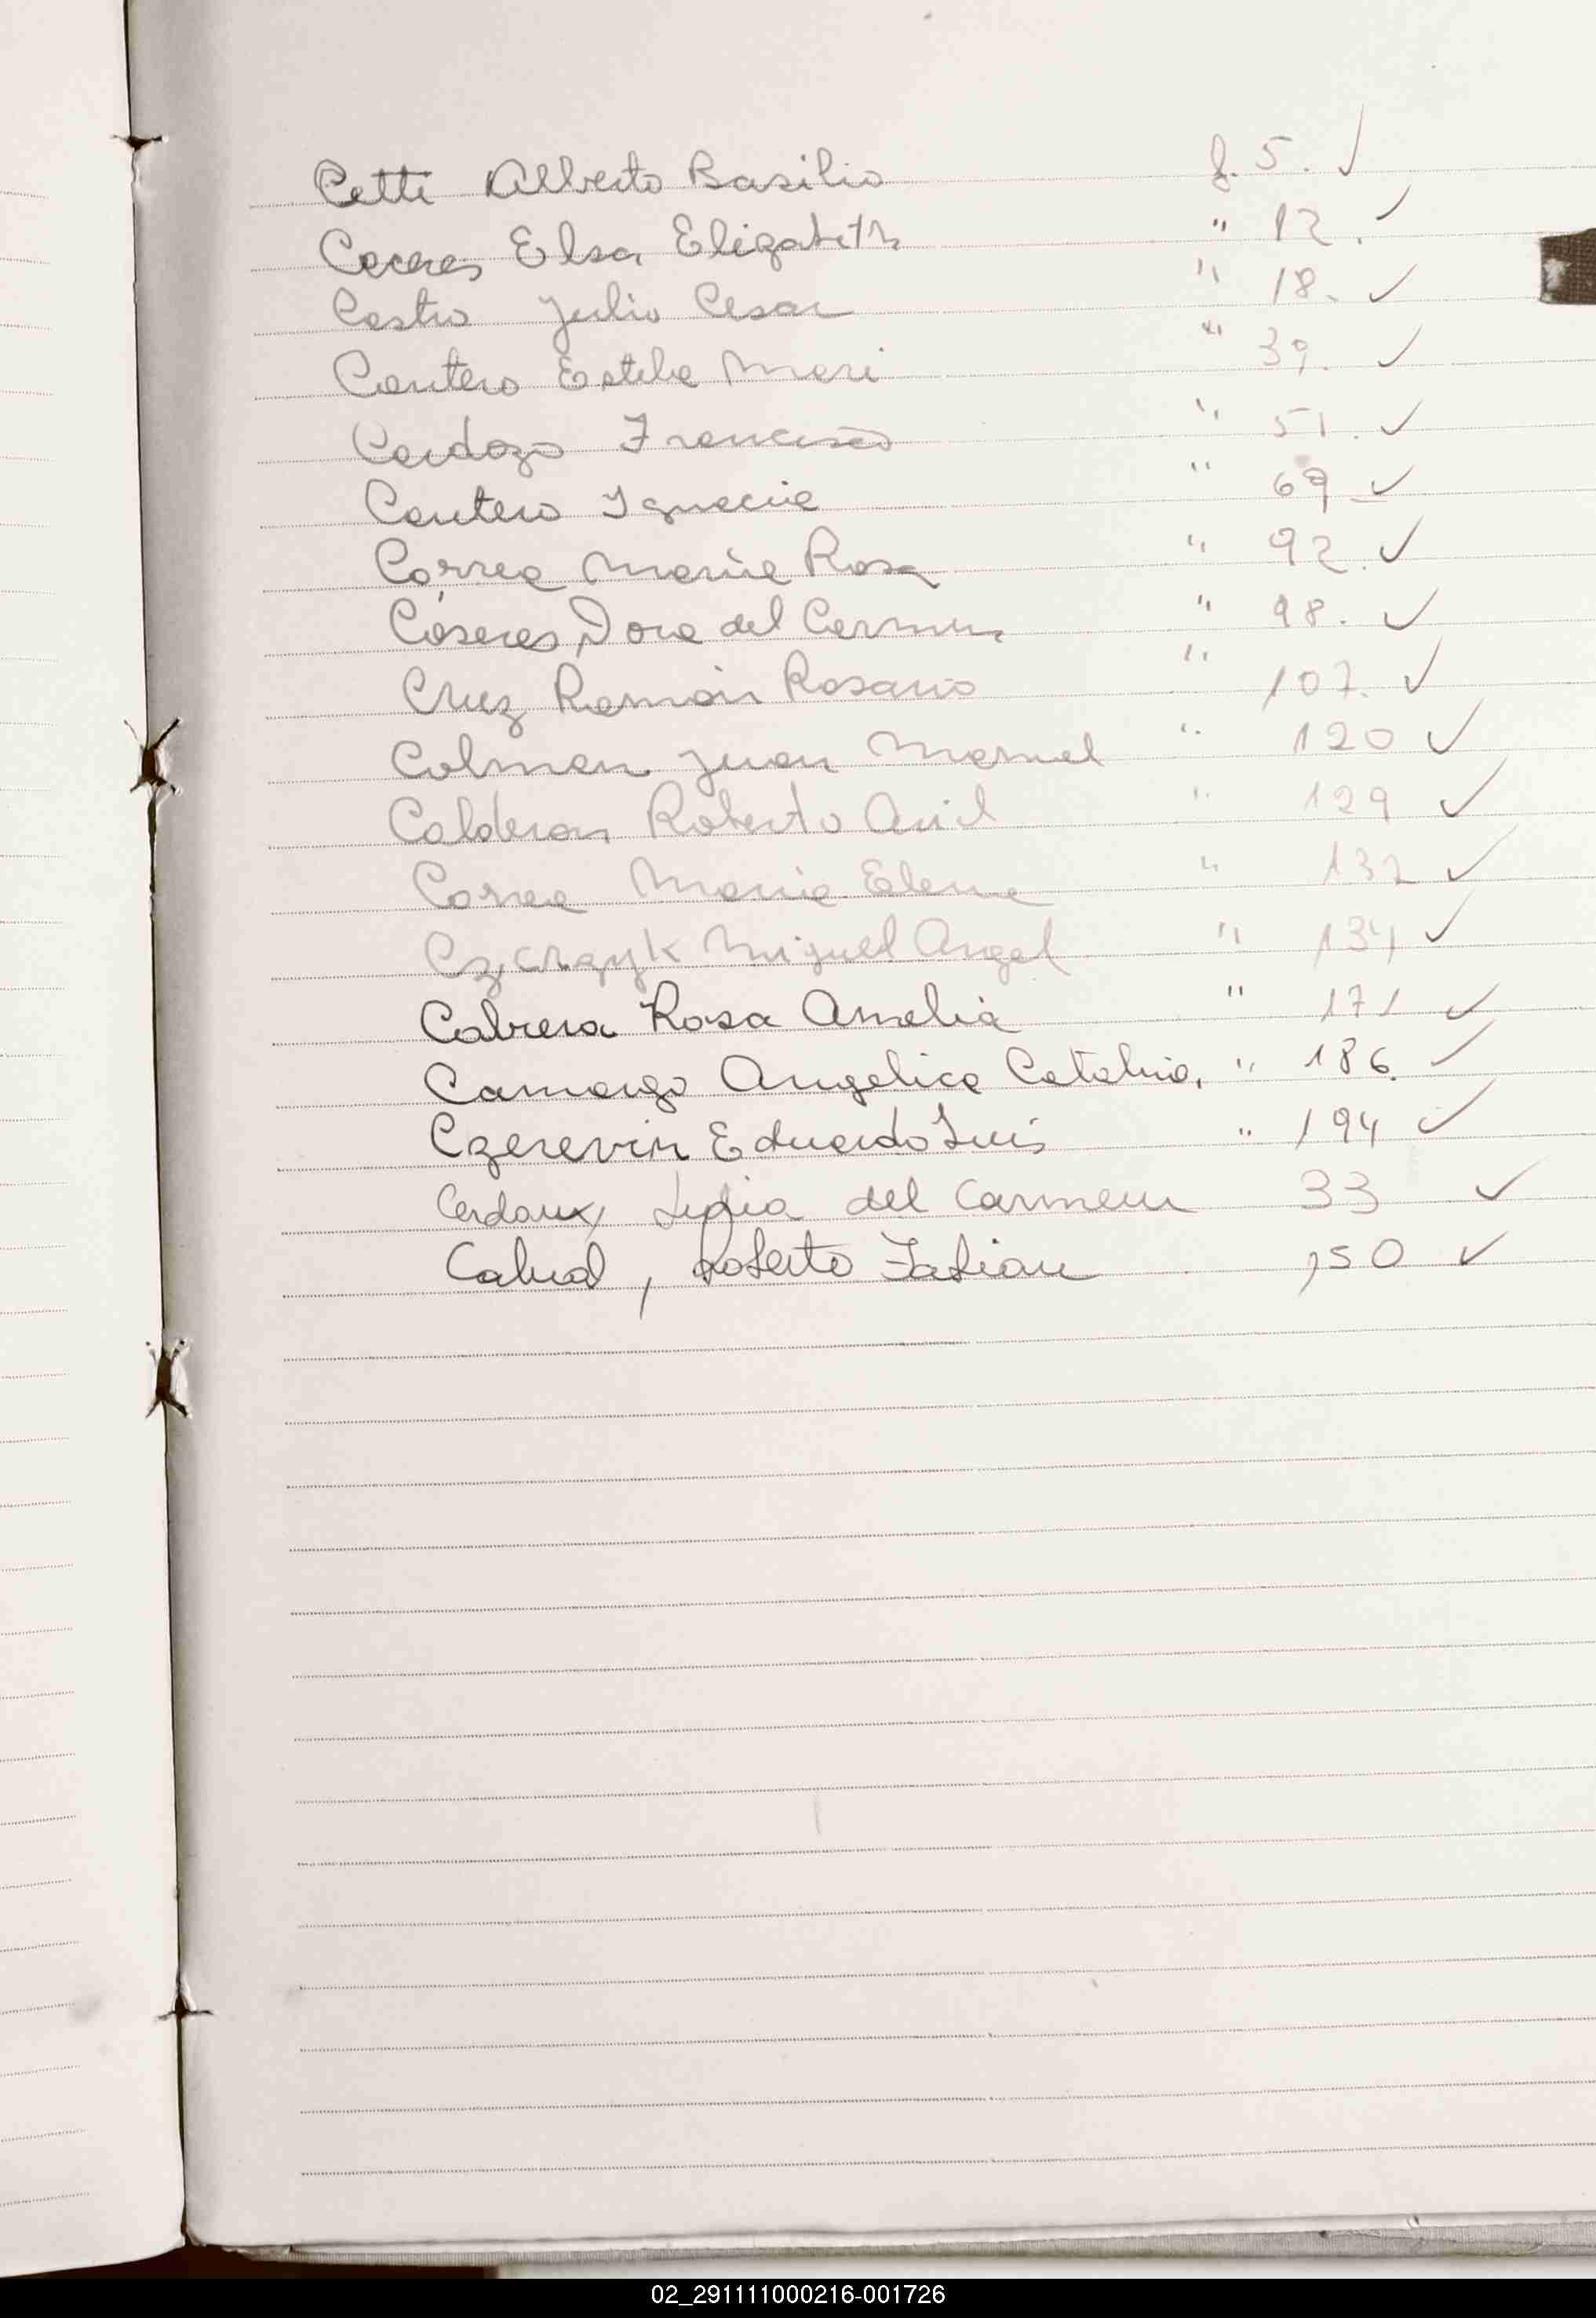 Cetti Alberto Basilio f. 5. ✓
Caceres Elsa Elizabeth " 12. ✓
Castro Julio Cesar " 18. ✓
Cantero Estela Mari " 39. ✓
Cardozo Francisco " 51. ✓
Cantero Ignacia " 69 ✓
Correa Maria Rosa " 92. ✓
Cáseres, Dora del Carmen " 98. ✓
Cruz Ramón Rosario " 107. ✓
Colman Juan Manuel " 120 ✓
Calderon Roberto Ariel " 129 ✓
Correa Maria Elena " 132 ✓
Miguel Angel " 134 ✓
Cabrera Rosa Amelia " 171 ✓
Camargo Angelica Catalina, " 186. ✓
Czerevin Eduardo Luis " 194 ✓
Cardoux, Ligia del Carmen 33 ✓
Cabral, Roberto Fabian 150 ✓
02_291111000216-001726